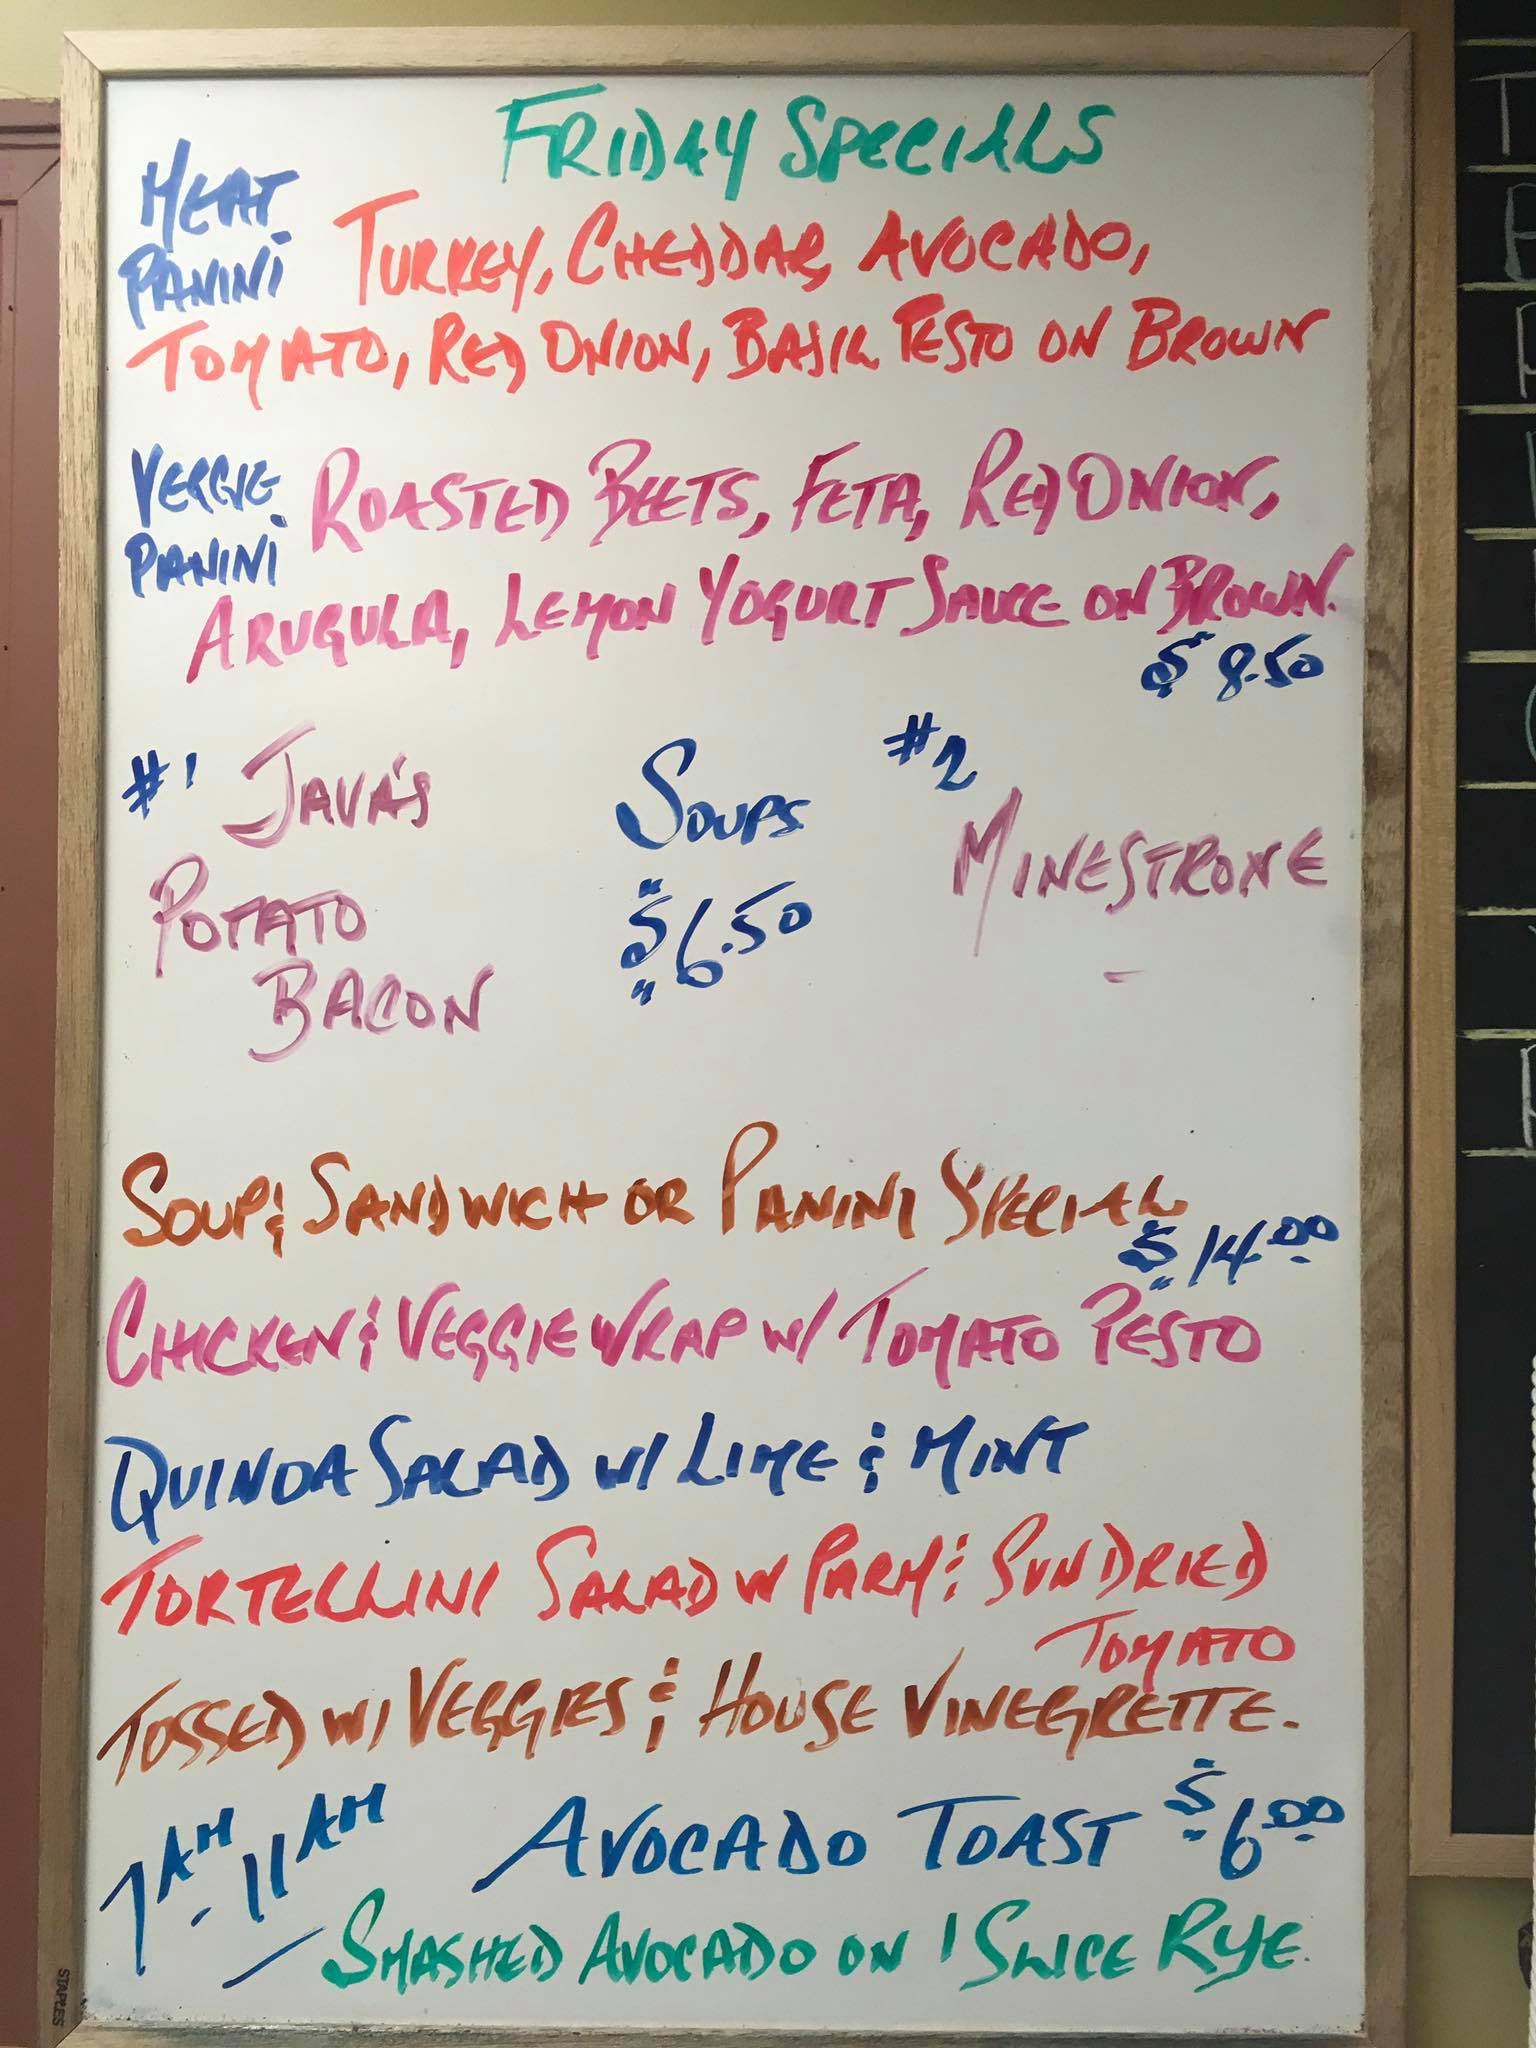 FRIDAY SPECIALS
MEAT
PANINI
TURKEY, CHEDDAR, AVOCADO,
TOMATO, RED ONION, BASIL PESTO ON BROWN
VEGGIE
PANINI
ROASTED BEETS, FETA, RED ONION,
ARUGULA, LEMON YOGURT SAUCE ON BROWN.
$8.50
#1 JAVA'S
POTATO
BACON
SOUPS
$6.50
#2
MINESTRONE
SOUP & SANDWICH OR PANINI SPECIAL
$14.00
CHICKEN & VEGGIE WRAP W/ TOMATO PESTO
QUINOA SALAD W/ LIME & MINT
TORTELLINI SALAD W PARM & SUNDRIED
TOMATO
TOSSED W/ VEGGIES & HOUSE VINEGRETTE.
7AM - 11AM
AVOCADO TOAST $6.00
- SMASHED AVOCADO ON 1 SLICE RYE.
STAPLES